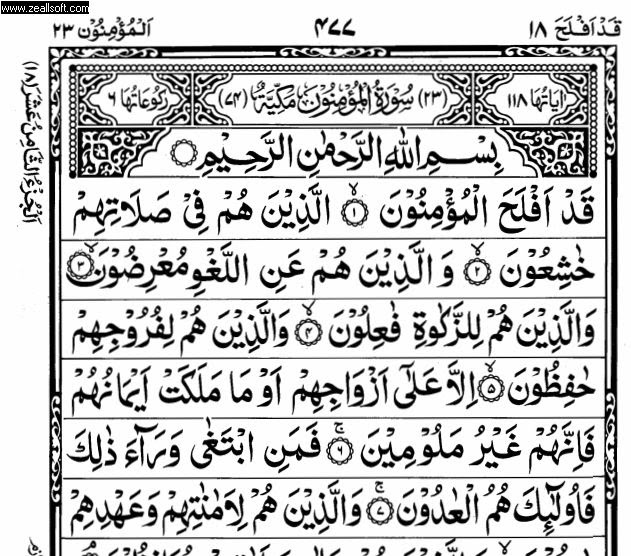 www.zeallsoft.com
قَدْ اَفْلَحَ ١٨
٤٧٧
اَلْمُؤْمِنُوْن ٢٣
اَلْجُزْءُ الثَّامِنُ عَشَرَ (١٨)
اٰيَاتُهَا ١١٨
(٢٣) سُوْرَةُ الْمُؤْمِنُوْنَ مَكِّيَّةٌ (٧٤)
رُكُوْعَاتُهَا ٦
بِسْمِ اللّٰهِ الرَّحْمٰنِ الرَّحِيْمِ
قَدْ اَفْلَحَ الْمُؤْمِنُوْنَ ۙ١ الَّذِيْنَ هُمْ فِيْ صَلَاتِهِمْ
خٰشِعُوْنَ ۙ٢ وَالَّذِيْنَ هُمْ عَنِ اللَّغْوِ مُعْرِضُوْنَ ۙ٣
وَالَّذِيْنَ هُمْ لِلزَّكٰوةِ فٰعِلُوْنَ ۙ٤ وَالَّذِيْنَ هُمْ لِفُرُوْجِهِمْ
حٰفِظُوْنَ ۙ٥ اِلَّا عَلٰٓى اَزْوَاجِهِمْ اَوْ مَا مَلَكَتْ اَيْمَانُهُمْ
فَاِنَّهُمْ غَيْرُ مَلُوْمِيْنَ ۚ٦ فَمَنِ ابْتَغٰى وَرَآءَ ذٰلِكَ
فَاُولٰٓئِكَ هُمُ الْعٰدُوْنَ ۚ٧ وَالَّذِيْنَ هُمْ لِاَمٰنٰتِهِمْ وَعَهْدِهِمْ